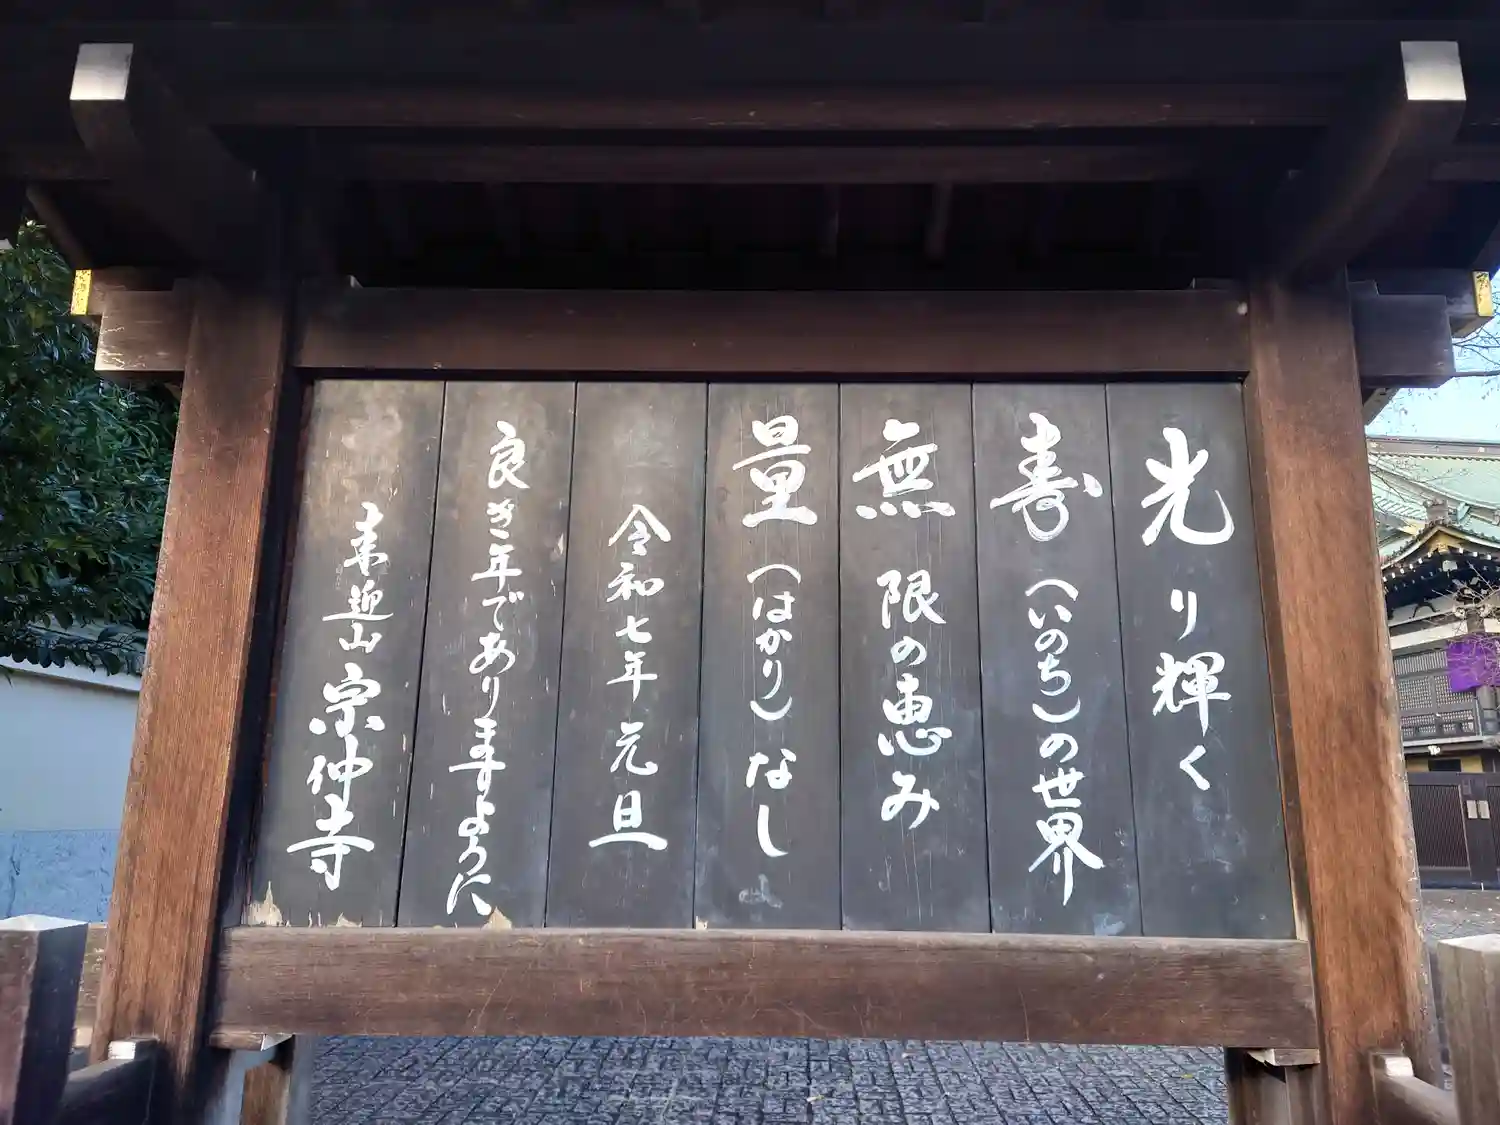 光り輝く
寿(いのち)の世界
無限の恵み
量(はかり)なし
令和七年元旦
良き年でありますように
来迎山宗仲寺